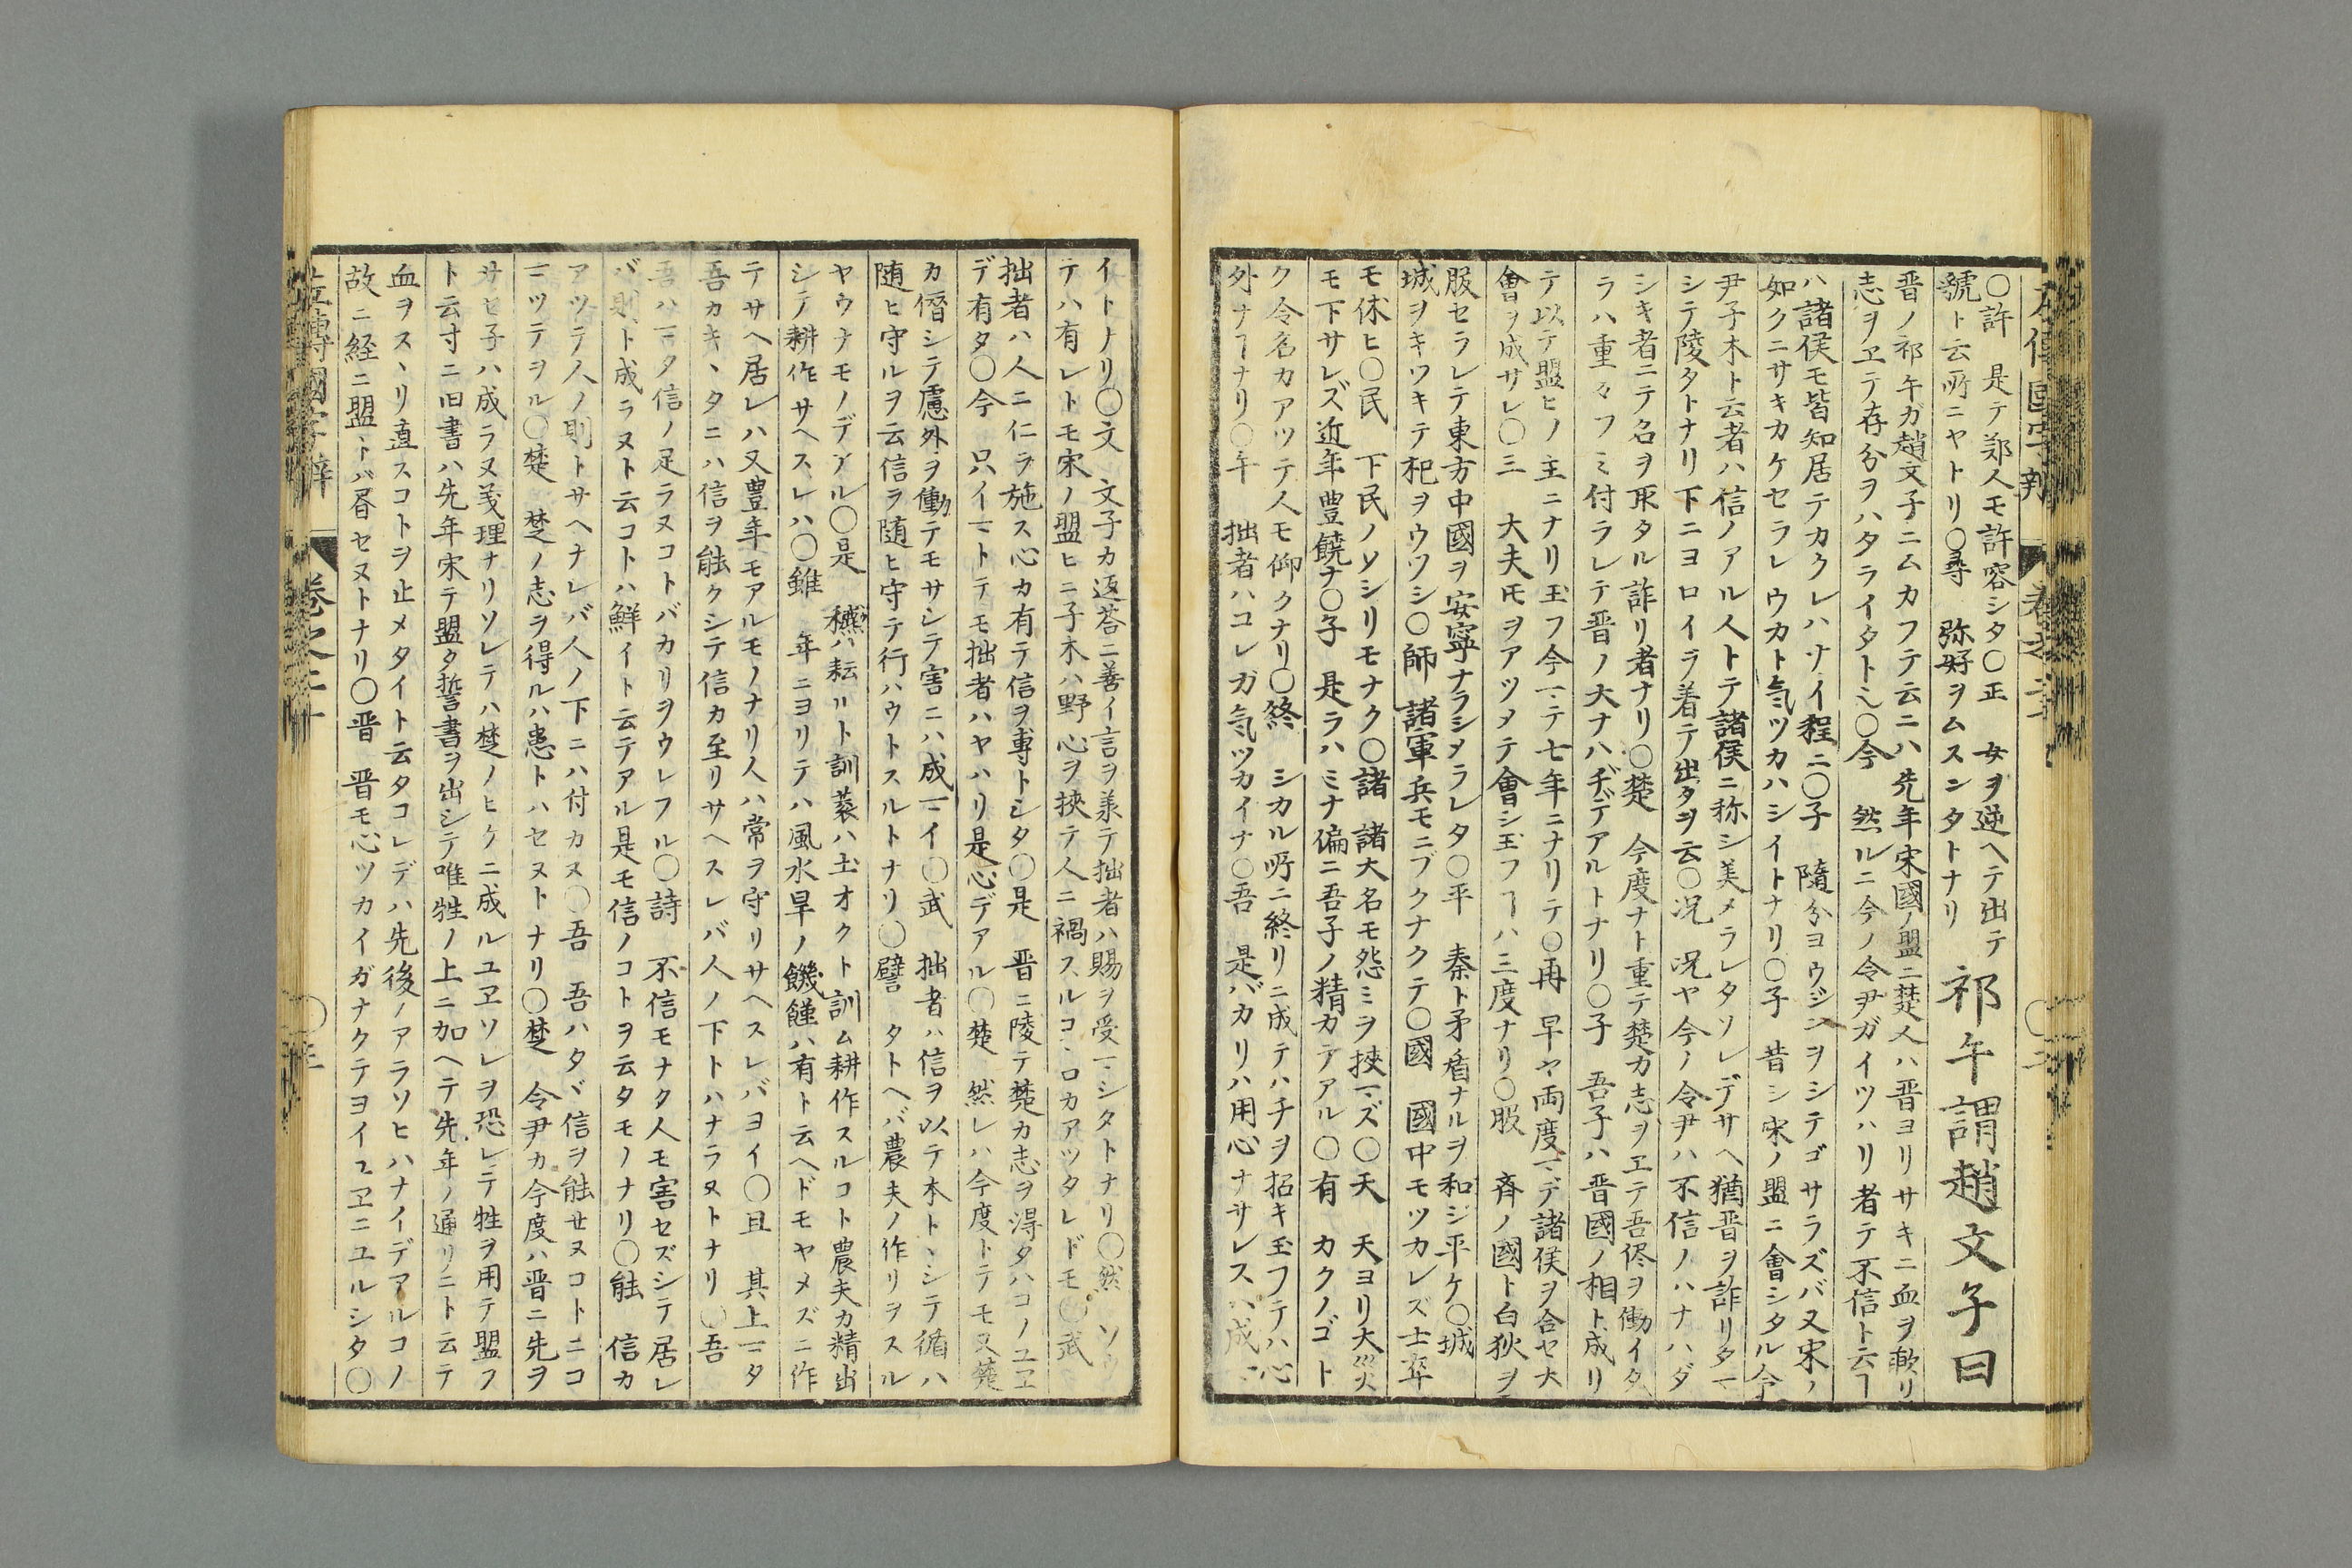 左傳國字辨 卷之二十
○許 是テ郑人モ許容シタ○正 女ヲ逆ヘテ出テ
虢ト云所ニヤトリ○尋 弥好ヲムスンタトナリ
祁午謂趙文子曰
晋ノ祁午ガ趙文子ニムカフテ云ニハ先年宋國ノ盟ニ楚人ハ晋ヨリサキニ血ヲ歃リ
志ヲヱテ存分ヲハタライタト也○今 然ルニ今ノ令尹ガイツハリ者テ不信ト云ヿ
ハ諸侯モ皆知居テカクレハナイ程ニ○子 隨分ヨウジンヲシテゴサラズバ又宋ノ
如クニサキカケセラレウカト気ツカハシイトナリ○子 昔シ宋ノ盟ニ會シタル令
尹子木ト云者ハ信ノアル人トテ諸侯ニ称シ美メラレタソレデサヘ猶晋ヲ詐リタマ
シテ陵タトナリ下ニヨロイヲ着テ出タヲ云○况 况ヤ今ノ令尹ハ不信ノハナハダ
シキ者ニテ名ヲ取タル詐リ者ナリ○楚 今度ナト重テ楚カ志ヲヱテ吾侭ヲ働イタ
ラハ重々フミ付ラレテ晋ノ大ナハヂデアルトナリ○子 吾子ハ晋國ノ相ト成リ
テ以テ盟ヒノ主ニナリ玉フ今マテ七年ニナリテ○再 早ヤ両度マデ諸侯ヲ合セ大
會ヲ成サレ○三 大夫モヲアツメテ會シ玉フヿハ三度ナリ○服 齊ノ國ト白狄ヲ
服セラレテ東方中國ヲ安寧ナラシメラレタ○平 秦ト矛盾ナルヲ和シ平ケ○城
城ヲキツキテ杞ヲウツシ○師 諸軍兵モニブクナクテ○國 國中モツカレズ士卒
モ休ヒ○民 下民ノソシリモナク○諸 諸大名モ怨ミヲ挾マズ○天 天ヨリ大災
モ下サレズ近年豊饒ナ○子 是ラハミナ偏ニ吾子ノ精カテアル○有 カクノゴト
ク令名カアツテ人モ仰クナリ○終 シカル所ニ終リニ成テハチヲ招キ玉フテハ心
外ナヿナリ○午 拙者ハコレガ気ツカイナ○吾 是バカリハ用心ナサレスハ成マ
イトナリ○文 文子カ返荅ニ善イ言ヲ羕テ拙者ハ賜ヲ受マシタトナリ○然 ソウ
テハ有レトモ宋ノ盟ヒニ子木ハ野心ヲ挾テ人ニ禍スルコヽロカアツタレドモ○武
拙者ハ人ニ仁ヲ施ス心カ有テ信ヲ専トシタ○是 晋ニ陵テ楚カ志ヲ得タハコノユヱ
デ有タ○今 只イマトテモ拙者ハヤハリ是心デアル○楚 然レハ今度トテモ又楚
カ僭シテ慮外ヲ働テモサシテ害ニハ成マイ○武 拙者ハ信ヲ以テ本トヽシテ循ハ
随ヒ守ルヲ云信ヲ随ヒ守テ行ハウトスルトナリ○譬 タトヘバ農夫ノ作リヲスル
ヤウナモノデアル○是 穮ハ耘ルト訓蔉ハ土オクト訓ム耕作スルコト農夫カ精出
シテ耕作サヘスレハ○雖 年ニヨリテハ風水旱ノ饑饉ハ有ト云ヘドモヤメズニ作
テサヘ居レハ又豊年モアルモノナリ人ハ常ヲ守リサヘスレバヨイ○且 其上マタ
吾カキヽタニハ信ヲ能クシテ信カ至リサヘスレバ人ノ下トハナラヌトナリ○吾
吾ハマタ信ノ足ラヌコトバカリヲウレフル○詩 不信モナク人モ害セズシテ居レ
バ則ト成ラヌト云コトハ鮮イト云テアル是モ信ノコトヲ云タモノナリ○能 信カ
アツテ人ノ則トサヘナレバ人ノ下ニハ付カヌ○吾 吾ハタヾ信ヲ能セヌコトニコ
マツテヲル○楚 楚ノ志ヲ得ルハ患トハセヌトナリ○楚 令尹カ今度ハ晋ニ先ヲ
サセ子ハ成ラヌ義理ナリソレテハ楚ノヒケニ成ルユヱソレヲ恐レテ牲ヲ用テ盟フ
ト云寸ニ旧書ハ先年宋テ盟タ誓書ヲ出シテ唯牲ノ上ニ加ヘテ先年ノ通リニト云テ
血ヲスヽリ直スコトヲ止メタイト云タコレデハ先後ノアラソヒハナイデアルコノ
故ニ経ニ盟トバ㫺セヌトナリ○晋 晋モ心ツカイガナクテヨイユヱニユルシタ○
左傳國字辨 卷之二十